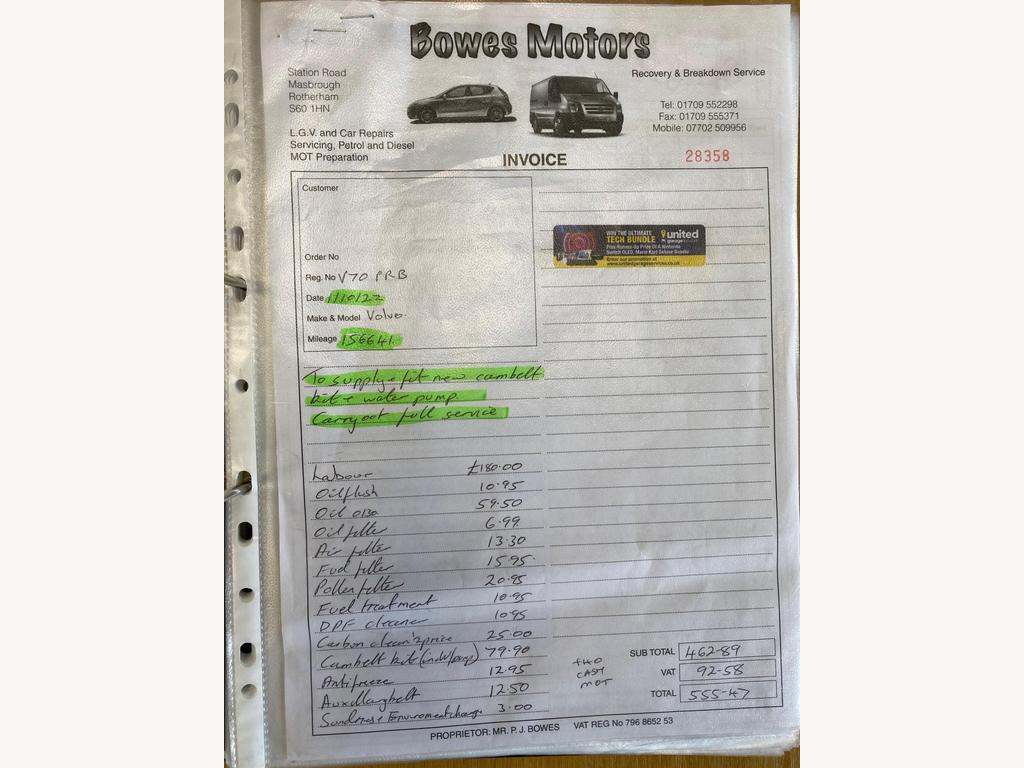 Bowes Motors
Station Road
Masbrough
Rotherham
S60 1HN
Recovery & Breakdown Service
Tel: 01709 552298
Fax: 01709 555371
Mobile: 07702 509956
L.G.V. and Car Repairs
Servicing, Petrol and Diesel
MOT Preparation
INVOICE
28358
Customer
WIN THE ULTIMATE
TECH BUNDLE
united
garage services
Plus Runner-Up Prize Of A Nintendo
Switch OLED, Mario Kart Deluxe Bundle
Enter our promotion at
www.unitedgarageservices.co.uk
Order No
Reg. No V70 PRB
Date 1/10/22
Make & Model Volvo.
Mileage 156641
To supply + fit new cambelt
kit + water pump
Carry out full service
Labour £180.00
Oil flush 10.95
Oil 0130 59.50
Oil filter 6.99
Air filter 13.30
Fuel filter 15.95
Pollen filter 20.95
Fuel treatment 10.95
DPF cleaner 10.95
Carbon clean ½ price 25.00
Cambelt kit (incl w/pump) 79.90
Antifreeze 12.95
Auxillary belt 12.50
Sundries + Enviroment charge 3.00
CASH
MOT
SUB TOTAL 462-89
VAT 92-58
TOTAL 555-47
PROPRIETOR: MR. P. J. BOWES VAT REG No 796 8652 53